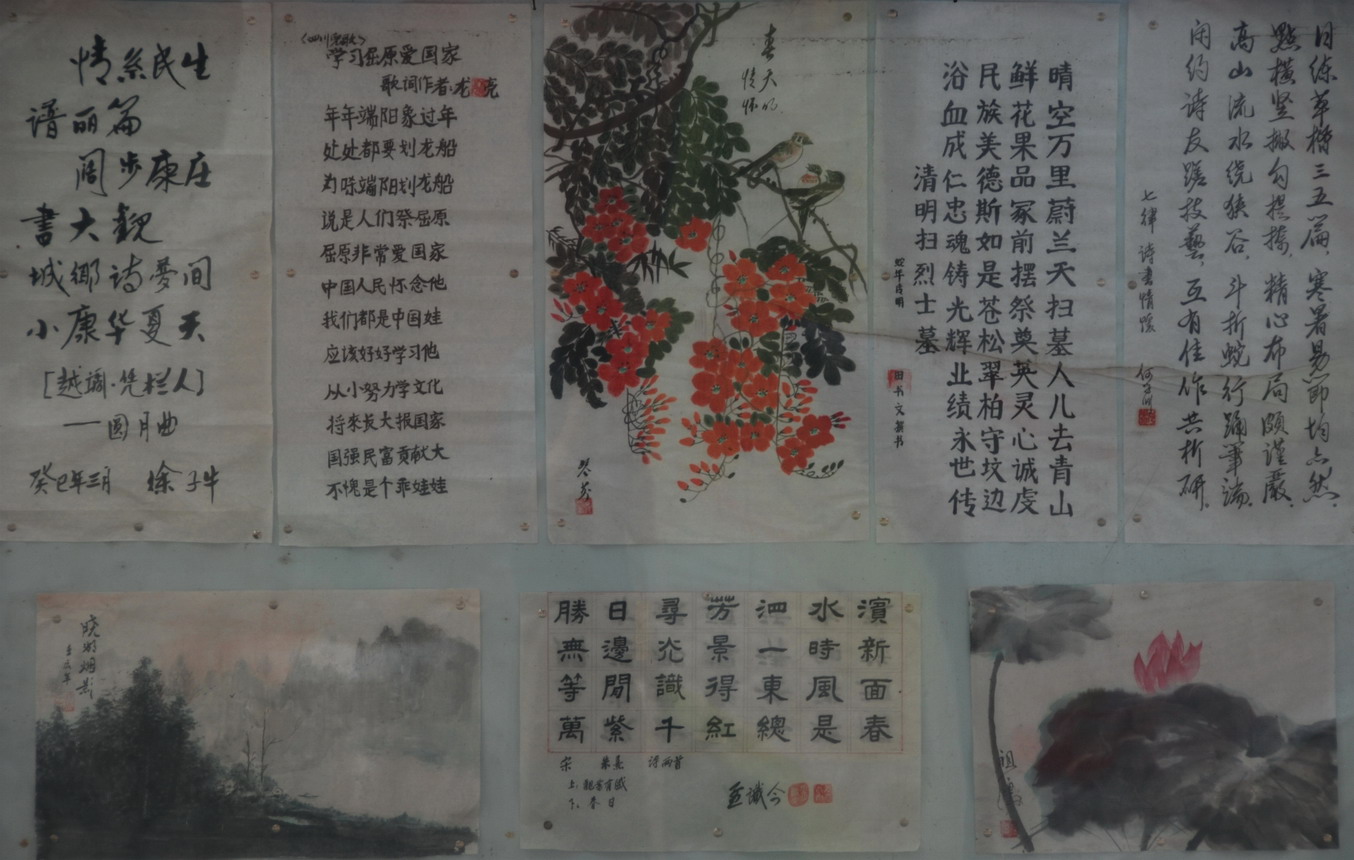 情系民生
谱丽篇
阔步康庄
書大觀
城鄉诗夢间
小康华夏天
[越调·凭栏人]
一圆月曲
癸巳年三月 徐子牛
学习屈原爱国家
歌词作者:龙 亮
年年端阳象过年
处处都要划龙船
为啥端阳划龙船
说是人们祭屈原
屈原非常爱国家
中国人民怀念他
我们都是中国娃
应该好好学习他
从小努力学文化
将來长大报国家
国强民富贡献大
不愧是个乖娃娃
春天的
情怀
晴空万里蔚兰天扫墓人儿去青山
鲜花果品冢前摆祭奠英灵心诚虔
民族美德斯如是苍松翠柏守坟边
浴血成仁忠魂铸光辉业绩永世传
清明扫烈士墓
蛇年清明
田书文 书
日练草楷三五篇,寒暑易节均亦然.
點横竖撇勾提捺,精心布局颇谨嚴.
高山流水绕狭谷,斗折蛇行踊筆端.
闲约诗友蹉技藝,互有佳作共析研.
七律 诗書情暖
勝日尋芳泗水濱
無邊光景一時新
等閒識得東風面
萬紫千紅總是春
宋 朱熹 诗两首
上:觀書有感
下:春日